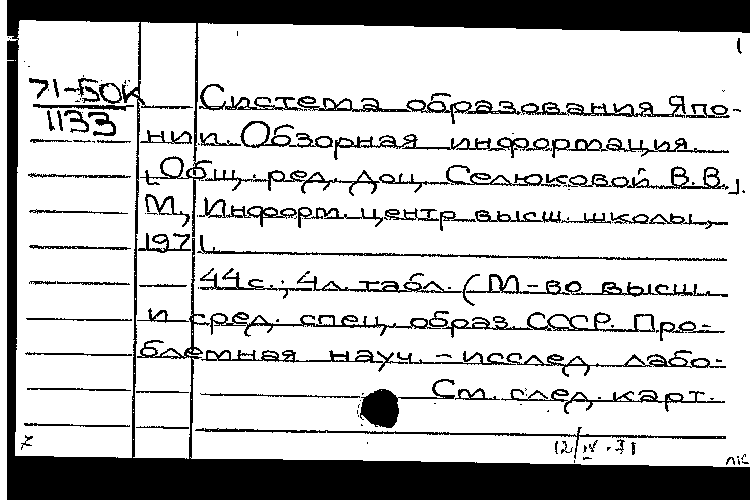 1
71-БОК Система образования Япо-
1133
нии. Обзорная информация.
[Общ. ред. доц. Селюковой В.В.].
М., Информ. центр высш. школы,
1971.
44 с.; 4 л. табл. (М-во высш.
и сред. спец. образ. СССР. Про-
блемная науч.-исслед. лабо-
См. след. карт.
12/IV-71